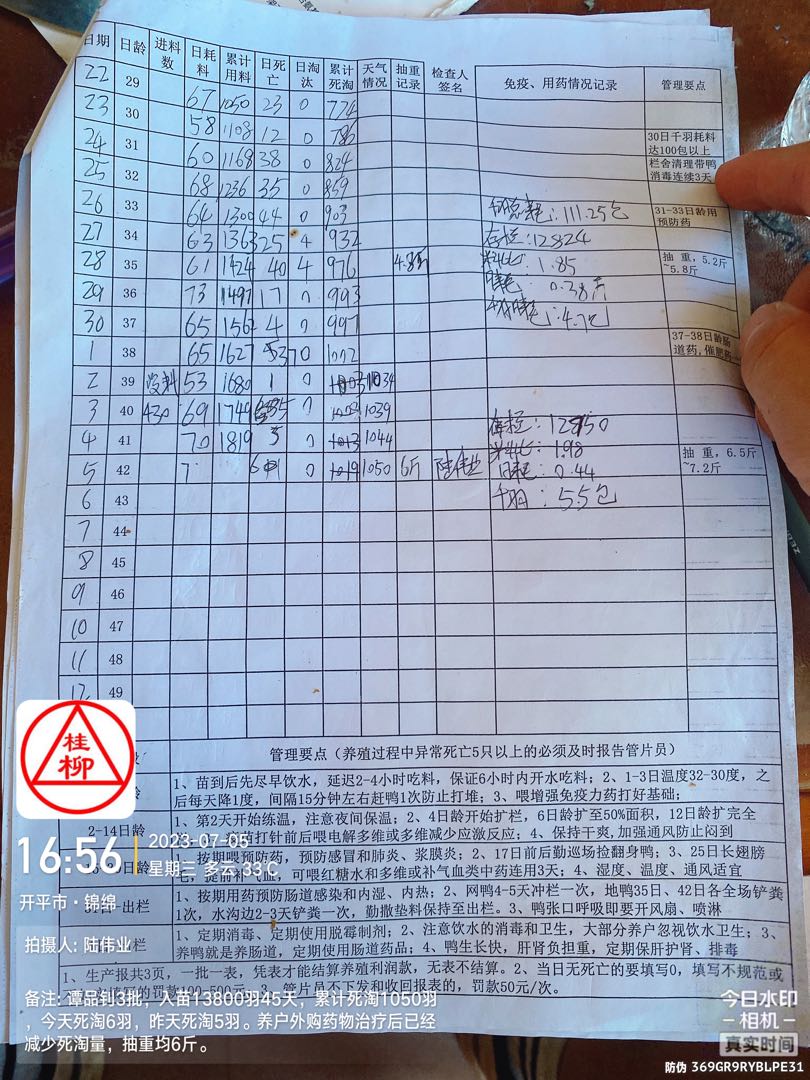 日期 日龄 进料数 日耗料 累计用料 日死亡 日淘汰 累计死淘 天气情况 抽重记录 检查人签名 免疫、用药情况记录 管理要点
22 29 67 1050 23 0 774
23 30 58 1108 12 0 786 30日千羽耗料达100包以上
24 31 60 1168 38 0 824 栏舍清理带鸭消毒连续3天
25 32 68 1236 35 0 859
26 33 64 1300 44 0 903 111.25包 31-33日龄用预防药
27 34 63 1363 25 4 932 存栏:12824
28 35 61 1424 40 4 976 1.85 抽 重,5.2斤~5.8斤
29 36 73 1497 17 0 993 0.38斤
30 37 65 4 0 997 4.7包
1 38 65 1627 37-38日龄肠道药,催肥药
2 39 53 1680 1 0 1034
3 40 430 69 1749 0 1039 存栏:
4 41 70 1819 5 0 1044 1.98
5 42 0 1050 6斤 陆伟业 日耗:0.44 抽 重,6.5斤~7.2斤
6 43 千羽:5.5包
7 44
8 45
9 46
10 47
11 48
12 49
桂柳
管理要点(养殖过程中异常死亡5只以上的必须及时报告管片员)
1、苗到后先尽早饮水,延迟2-4小时吃料,保证6小时内开水吃料;2、1-3日温度32-30度,之
后每天降1度,间隔15分钟左右赶鸭1次防止打堆;3、喂增强免疫力药打好基础;
2-14日龄 1、第2天开始练温,注意夜间保温;2、4日龄开始扩栏,6日龄扩至50%面积,12日龄扩完全
打针前后喂电解多维或多维减少应激反应;4、保持干爽,加强通风防止闷到
1、按期喂预防药,预防感冒和肺炎、浆膜炎;2、17日前后勤巡场捡翻身鸭;3、25日长翅膀
可喂红糖水和多维或补气血类中药连用3天;4、湿度、温度、通风适宜
出栏 1、按期用药预防肠道感染和内湿、内热;2、网鸭4-5天冲栏一次,地鸭35日、42日各全场铲粪
1次,水沟边2-3天铲粪一次,勤撒垫料保持至出栏。3、鸭张口呼吸即要开风扇、喷淋
栏 1、定期消毒、定期使用脱霉制剂;2、注意饮水的消毒和卫生,大部分养户忽视饮水卫生;3、
养鸭就是养肠道,定期使用肠道药品;4、鸭生长快,肝肾负担重,定期保肝护肾、排毒
1、生产报共3页,一批一表,凭表才能结算养殖利润款,无表不结算。2、当日无死亡的要填写0,填写不规范或
填写的罚款100-500元。3、管片员不下发和收回报表的,罚款50元/次。
16:56
2023-07-05
星期三 多云 33℃
开平市·锦锦
拍摄人: 陆伟业
备注: 谭品到3批,入苗13800羽45天,累计死淘1050羽
,今天死淘6羽,昨天死淘5羽。养户外购药物治疗后已经
减少死淘量,抽重均6斤。
今日水印
相机
真实时间
防伪 369GR9RYBLPE31